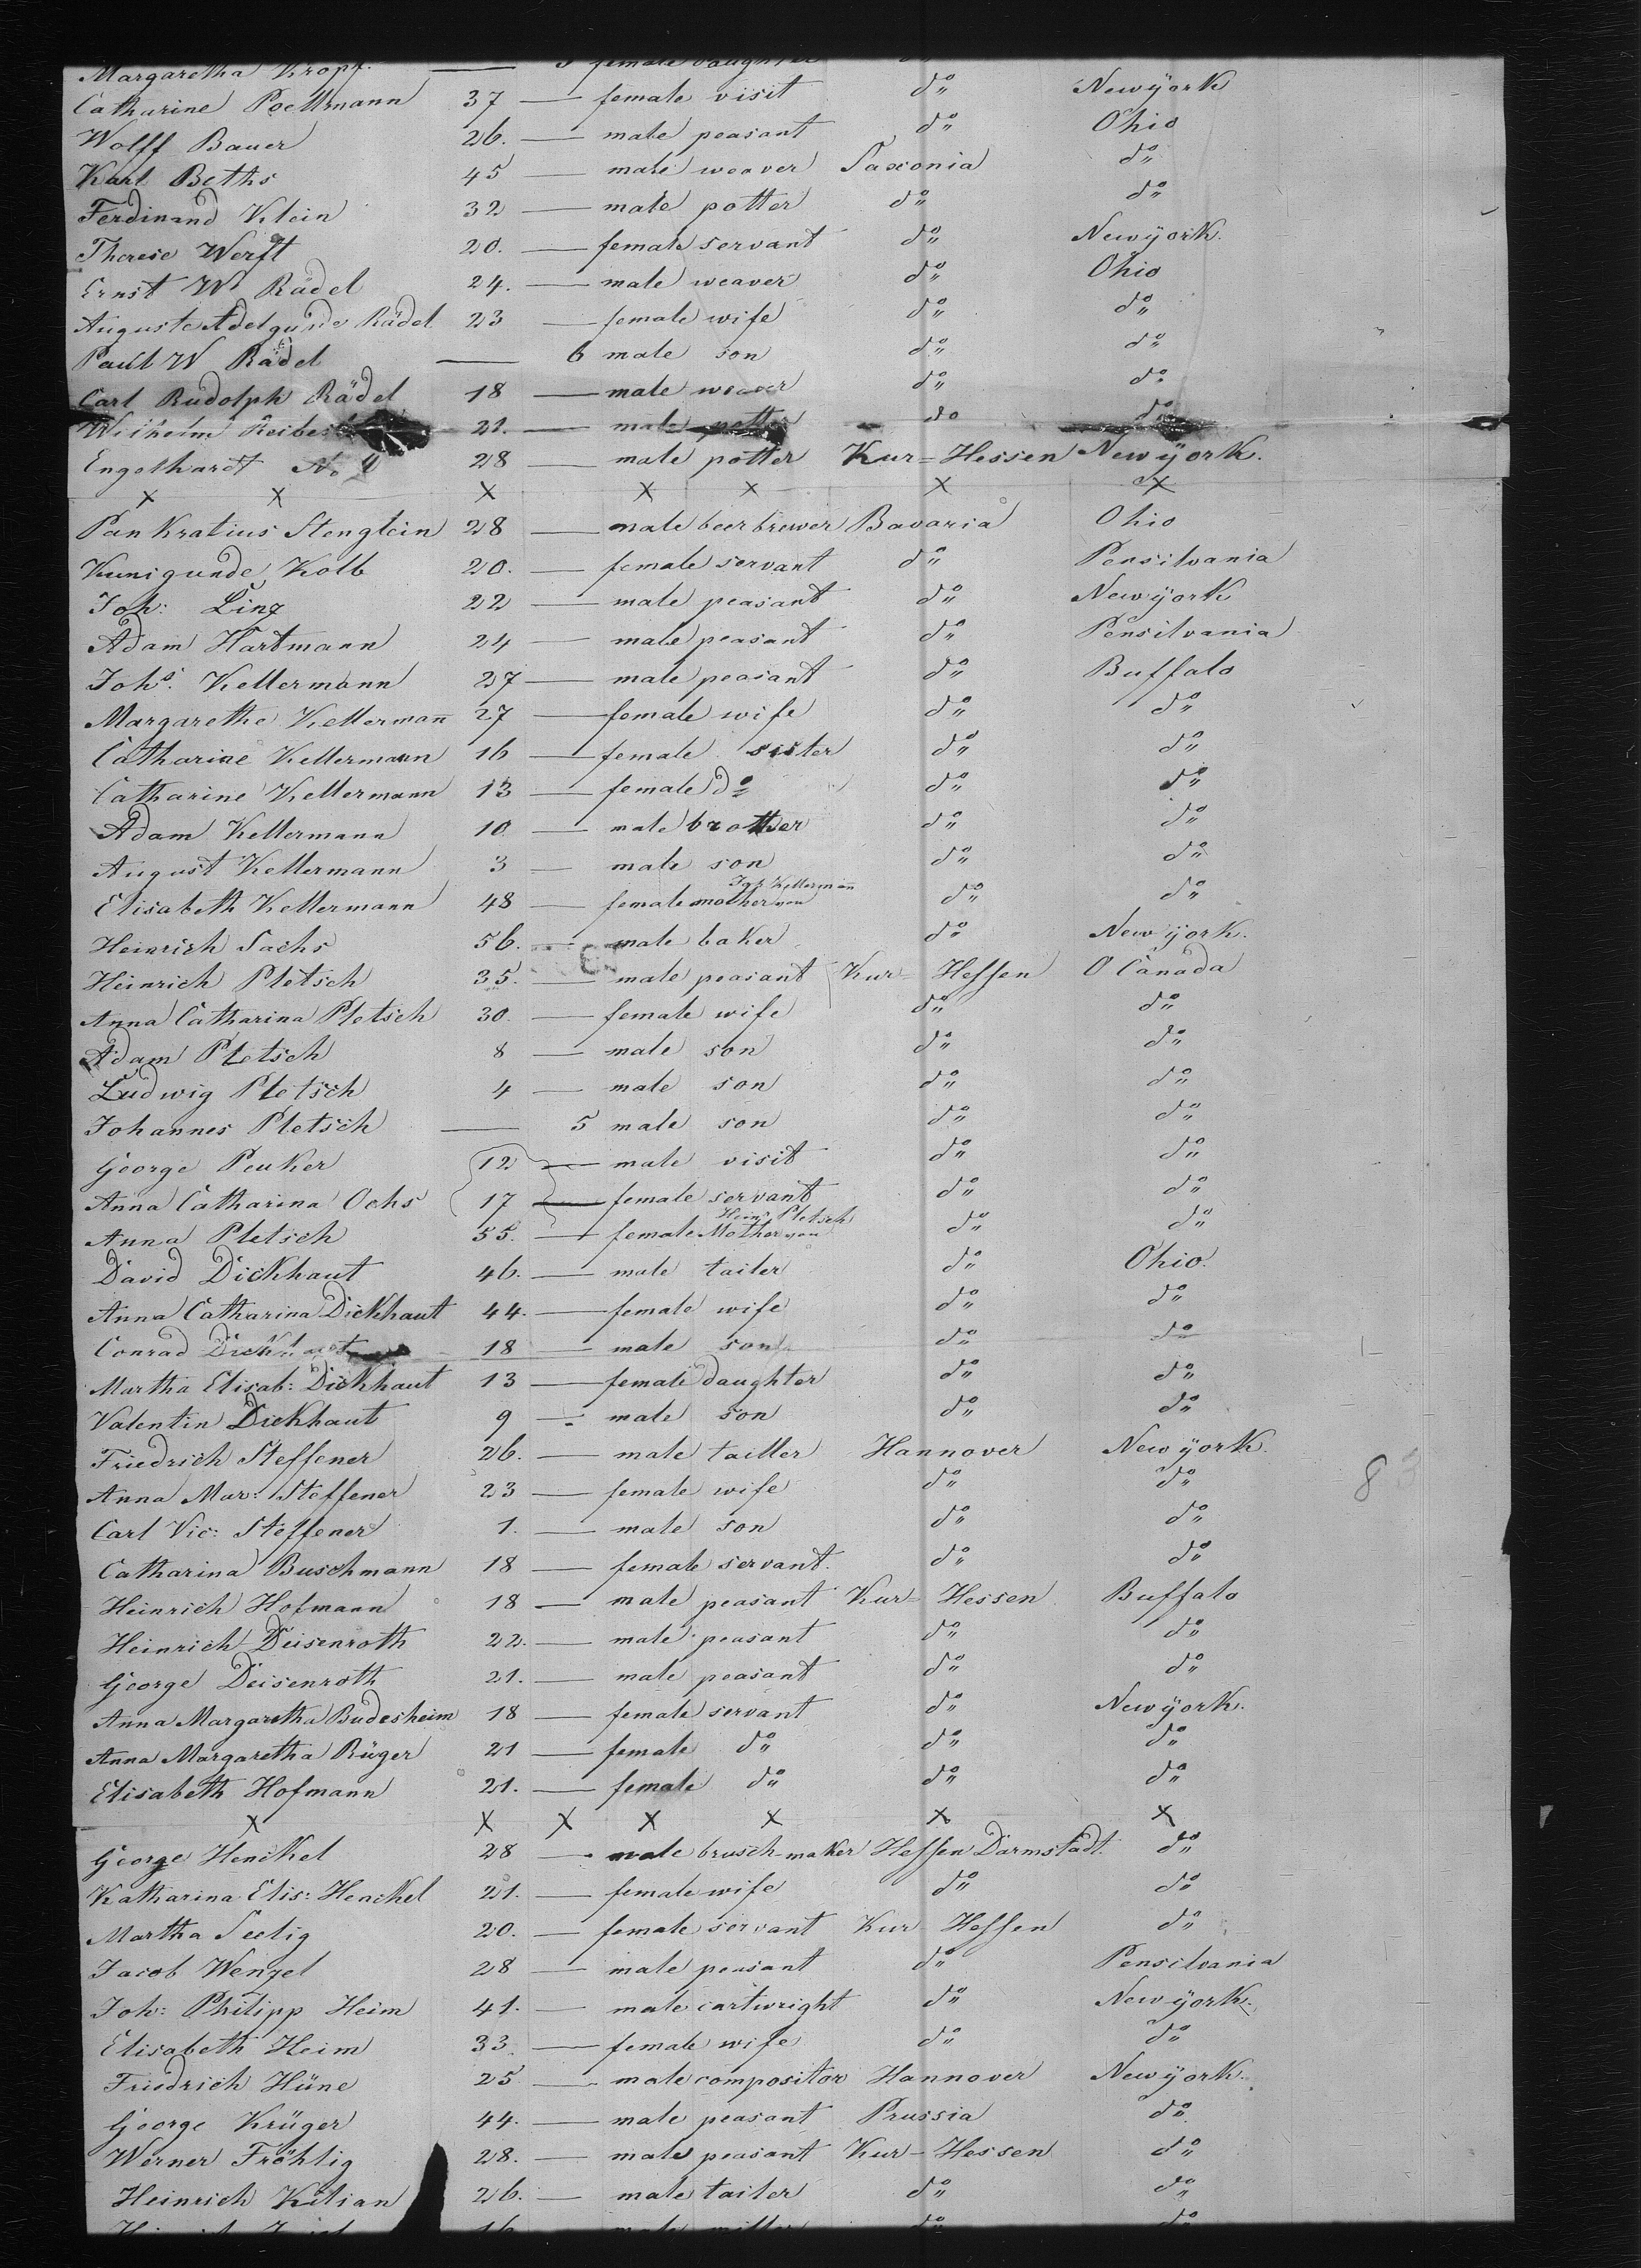 Margaretha Kropf — 5 female daughter do
Catharine Poellmann 37 — female visit do Newÿork
Wolff Bauer 26. — male peasant do Ohio
Karl Beths 45 — male weaver Saxonia do
Ferdinand Klein 32 — male potter do do
Therese Werft 20. — female servant do Newÿork.
Ernst W Rädel 24. — male weaver do Ohio
Auguste Adelgunde Rädel 23 — female wife do do
Paul W Rädel — 6 male son do do
Carl Rudolph Rädel 18 — male weaver do do
Wilhelm 21. — male potter do do
Engelhardt No 4 28 — male potter Kur-Hessen Newÿork.
X X X X X X X
Pankratius Stenglein 28 — male beerbrewer Bavaria Ohio
Kunigunde Kolb 20. — female servant do Pensilvania
Joh: Ling 22 — male peasant do Newÿork
Adam Hartmann 24 — male peasant do Pensilvania
Johs. Kellermann 27 — male peasant do Buffalo
Margarethe Kellermann 27 — female wife do do
Catharine Kellermann 16 — female sister do do
Catharine Kellermann 13 — female do do do
Adam Kellermann 10 — male brother do do
August Kellermann 3 — male son do do
Elisabeth Kellermann 48 — female mother von Joh Kellerman do do
Heinrich Sachs 56. — male baker do New ÿork.
Heinrich Pletsch 35. — male peasant Kur-Hessen O Canada
Anna Catharina Pletsch 30. — female wife do do
Adam Pletsch 8 — male son do do
Ludwig Pletsch 4 — male son do do
Johannes Pletsch — 5 male son do do
George Peuker 12 — male visit do do
Anna Catharina Ochs 17 — female servant do do
Anna Pletsch 55. — female Mother von Heinr Pletsch do do
David Dickhaut 46. — male tailer do Ohio.
Anna Catharina Dickhaut 44. — female wife do do
Conrad Dickhaut 18 — male son do do
Martha Elisab: Dickhaut 13 — female daughter do do
Valentin Dickhaut 9 — male son do do
Friedrich Steffener 26. — male tailler Hannover New ÿork.
Anna Mar: Steffener 23 — female wife do do
83
Carl Vic: Steffener 1. — male son do do
Catharina Buschmann 18 — female servant. do do
Heinrich Hofmann 18 — male peasant Kur-Hessen Buffalo
Heinrich Deisenroth 22. — male peasant do do
George Deisenroth 21. — male peasant do do
Anna Margaretha Budesheim 18 — female servant do Newÿork.
Anna Margaretha Rüger 21 — female do do do
Elisabeth Hofmann 21. — female do do do
X X X X X X X
George Henckel 28 — male brusch-maker Hessen Darmstadt. do
Katharina Elis: Henckel 21. — female wife do do
Martha Seelig 20. — female servant Kur-Hessen do
Jacob Wenzel 28 — male peasant do Pensilvania
Joh: Philipp Heim 41. — male cartwright do New-ÿork.
Elisabeth Heim 33. — female wife do do
Friedrich Hüne 25 — male compositor Hannover Newÿork.
George Krüger 44. — male peasant Prussia do
Werner Fröhlig 28. — male peasant Kur-Hessen do
Heinrich Kilian 26. — male tailer do do
16 male miller do do